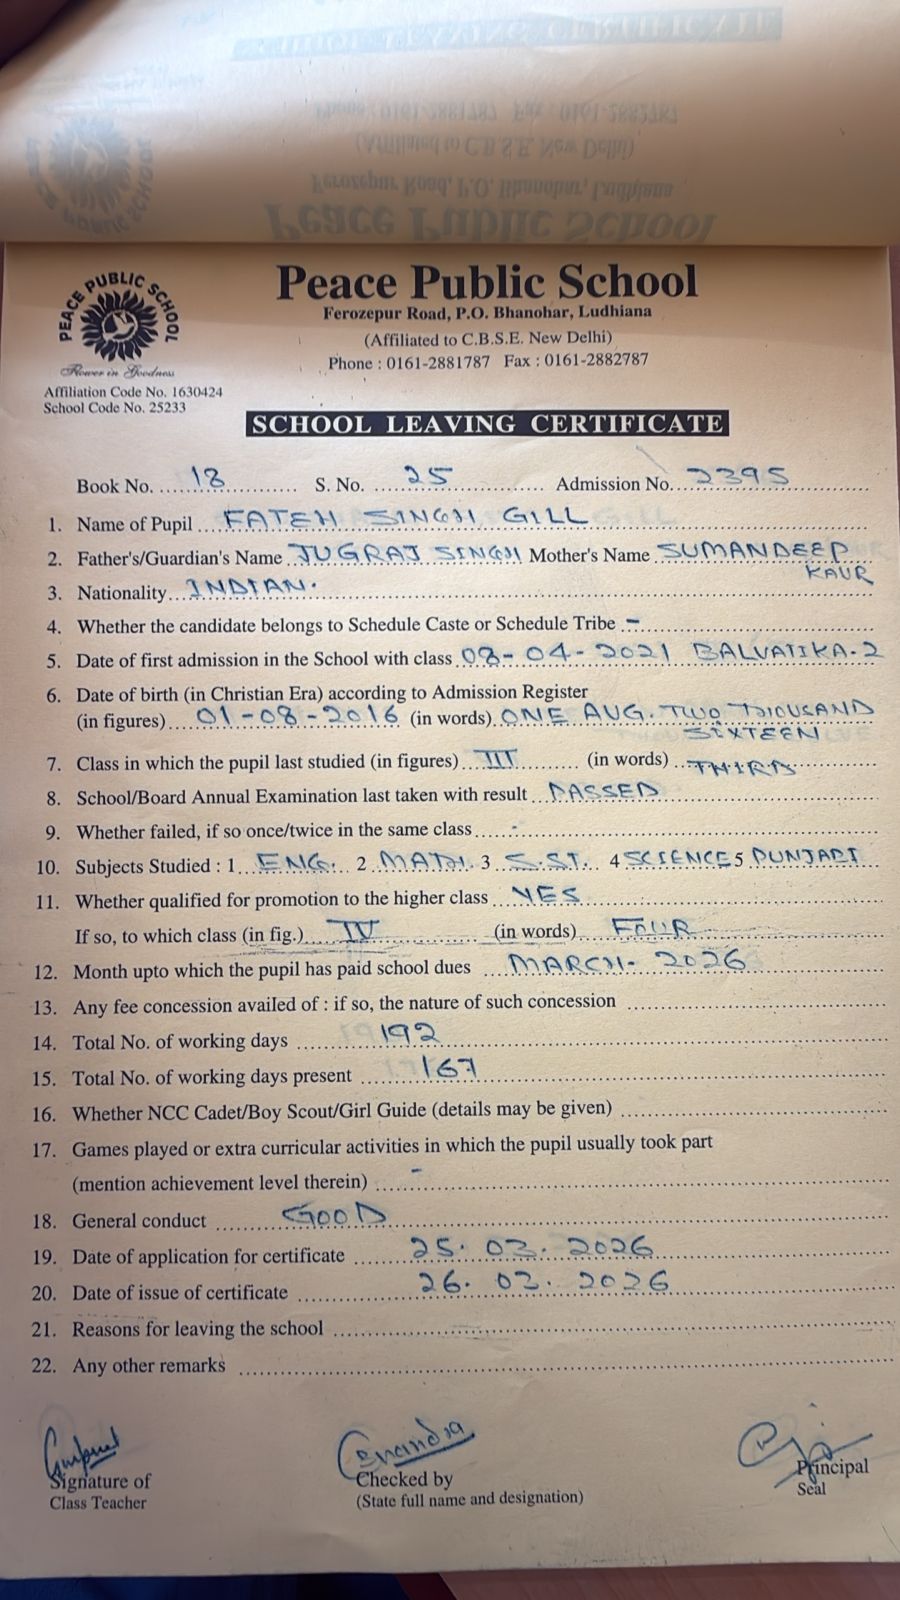 Peace Public School
Ferozepur Road, P.O. Bhanohar, Ludhiana
(Affiliated to C.B.S.E. New Delhi)
Phone : 0161-2881787 Fax : 0161-2882787
PEACE PUBLIC SCHOOL
Flower in Goodness
Affiliation Code No. 1630424
School Code No. 25233
SCHOOL LEAVING CERTIFICATE
Book No. 18 S. No. 25 Admission No. 2395
1. Name of Pupil FATEH SINGH GILL
2. Father's/Guardian's Name JUGRAJ SINGH Mother's Name SUMANDEEP
KAUR
3. Nationality INDIAN.
4. Whether the candidate belongs to Schedule Caste or Schedule Tribe -
5. Date of first admission in the School with class 08-04-2021 BALVATIKA-2
6. Date of birth (in Christian Era) according to Admission Register
(in figures) 01-08-2016 (in words) ONE AUG. TWO THOUSAND
SIXTEEN
7. Class in which the pupil last studied (in figures) III (in words) THIRD
8. School/Board Annual Examination last taken with result PASSED
9. Whether failed, if so once/twice in the same class -
10. Subjects Studied : 1. ENG. 2 MATH. 3 S.ST. 4 SCIENCE 5 PUNJABI
11. Whether qualified for promotion to the higher class YES
If so, to which class (in fig.) IV (in words) FOUR
12. Month upto which the pupil has paid school dues MARCH- 2026
13. Any fee concession availed of : if so, the nature of such concession
14. Total No. of working days 192
15. Total No. of working days present 167
16. Whether NCC Cadet/Boy Scout/Girl Guide (details may be given)
17. Games played or extra curricular activities in which the pupil usually took part
(mention achievement level therein) -
18. General conduct GOOD
19. Date of application for certificate 25. 03. 2026
20. Date of issue of certificate 26. 03. 2026
21. Reasons for leaving the school
22. Any other remarks
Signature of
Class Teacher
Chandra
Checked by
(State full name and designation)
Principal
Seal